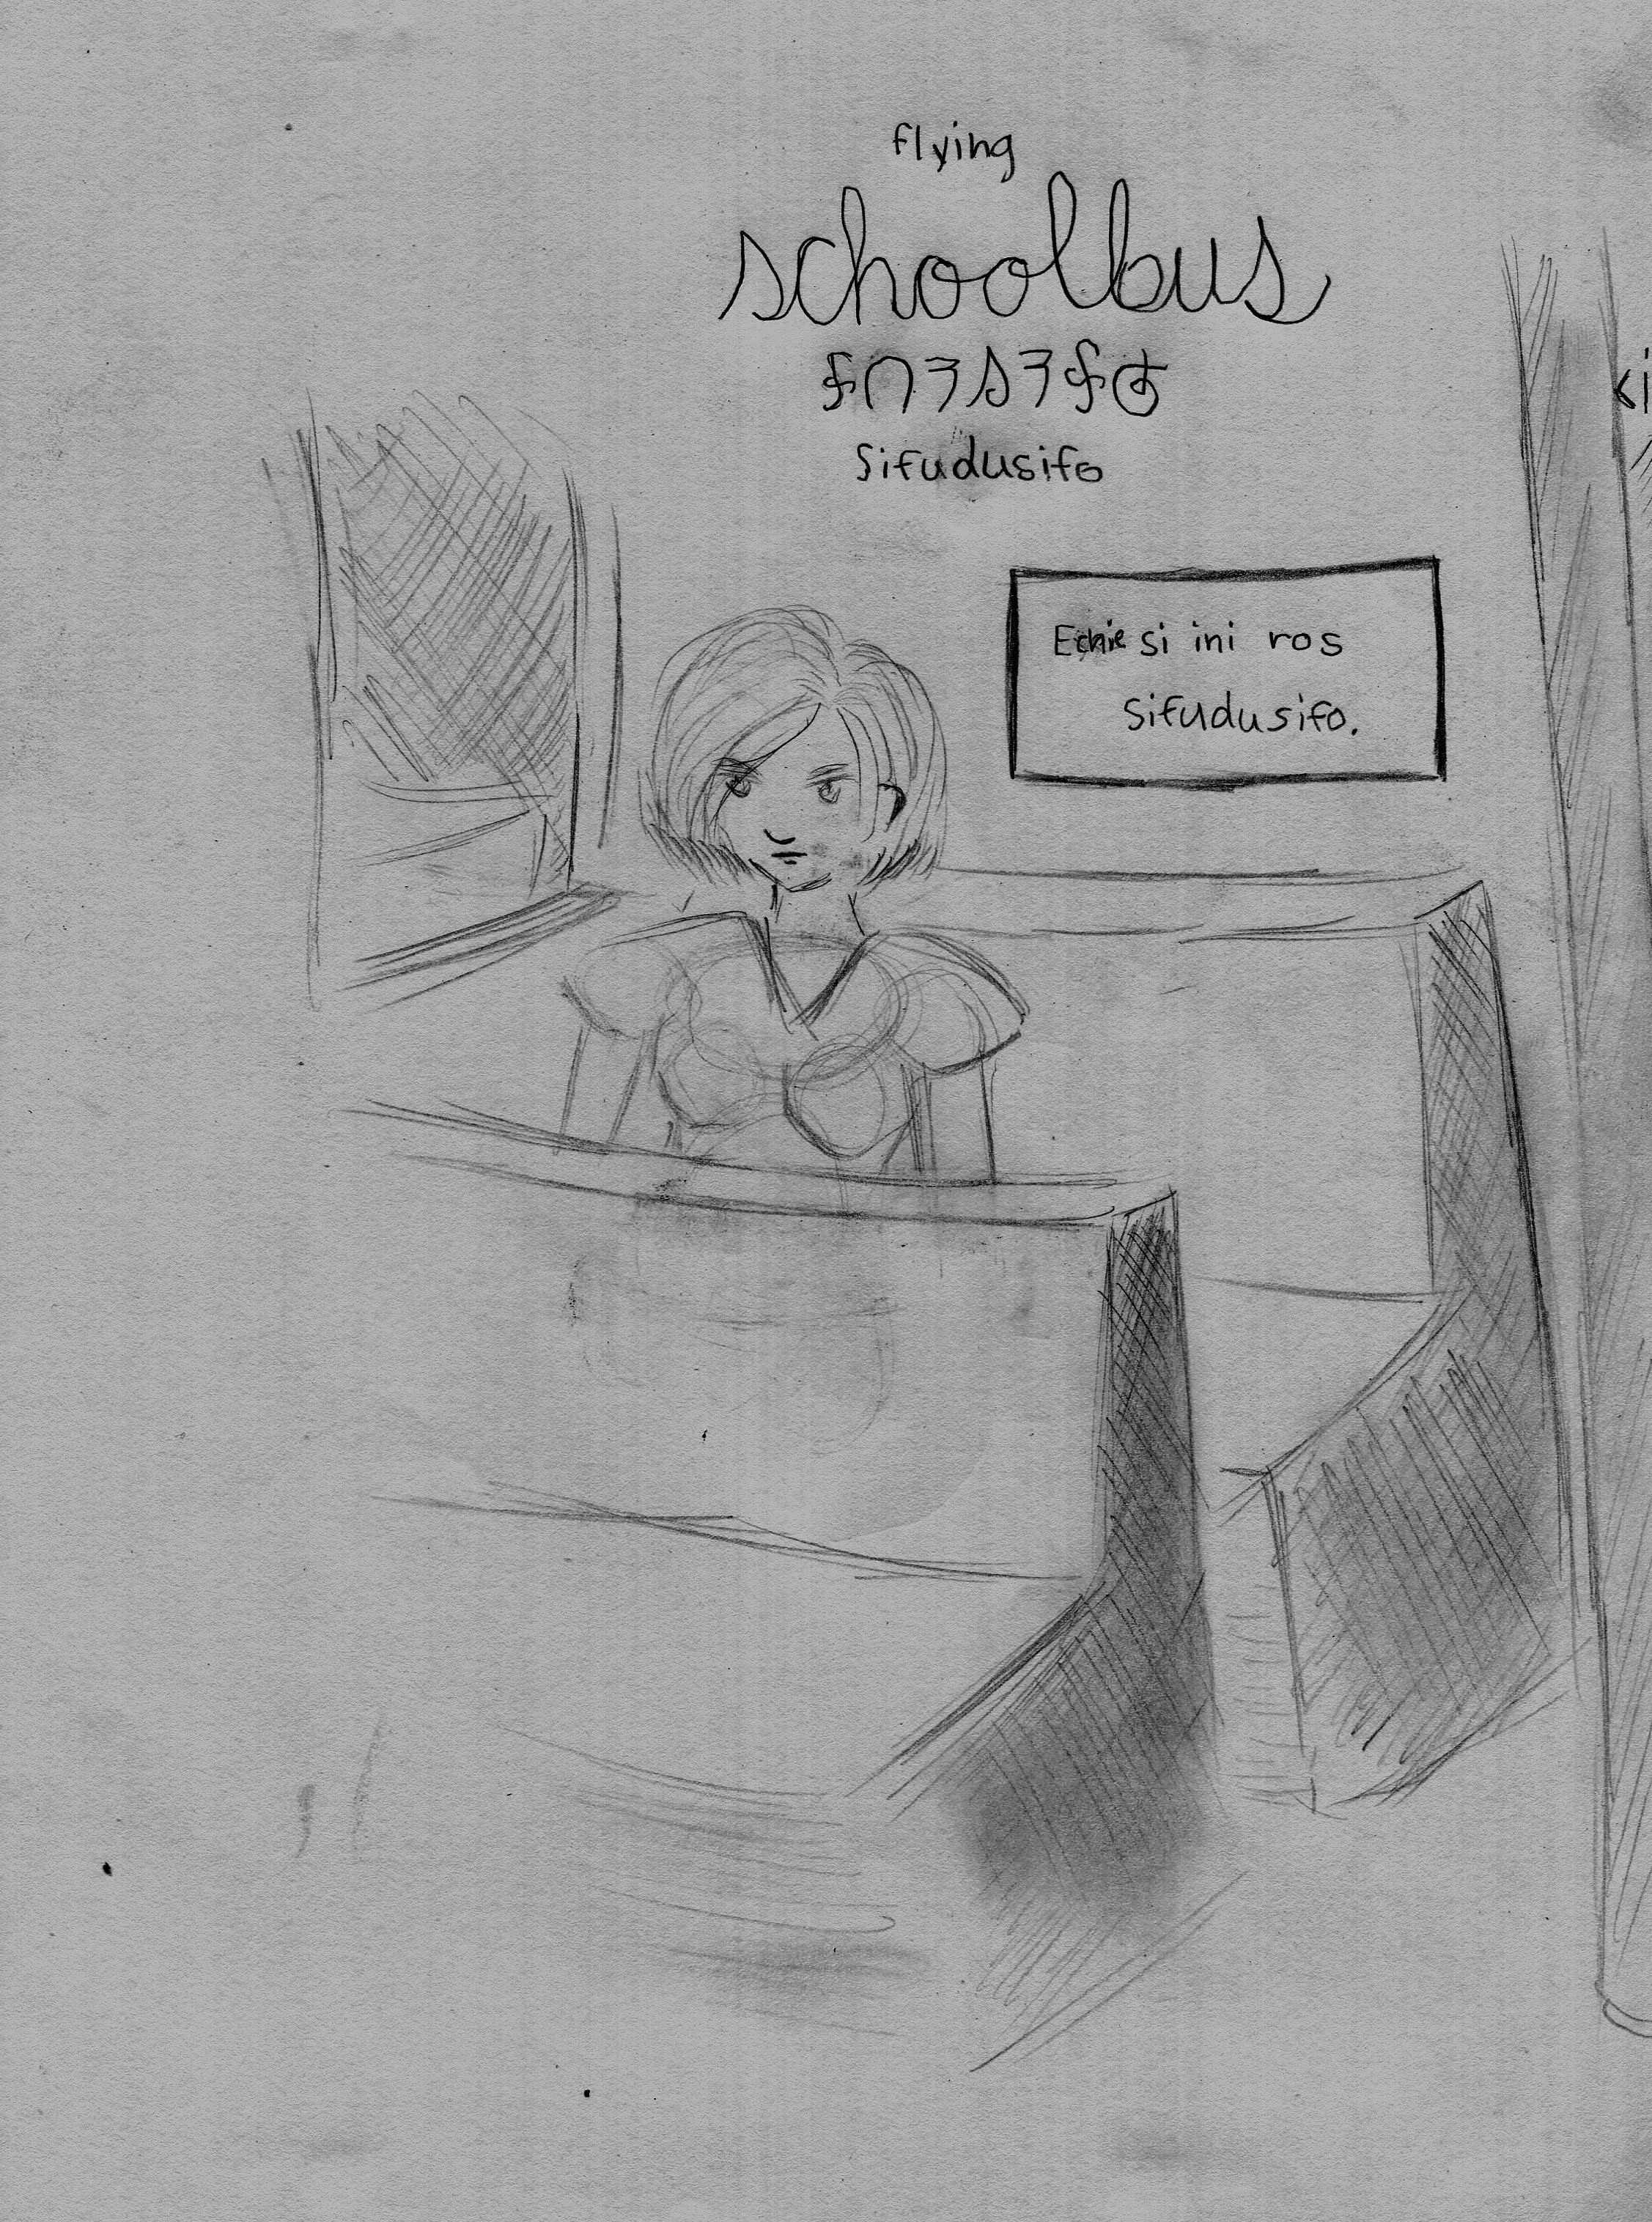 flying
schoolbus
Sifudusifo
Echie si ini ros
Sifudusifo.